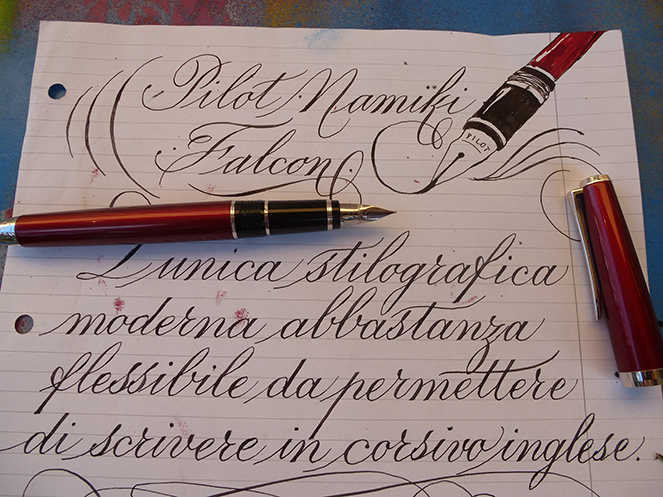 Pilot Namiki
Falcon
PILOT
L'unica stilografica
moderna abbastanza
flessibile da permettere
di scrivere in corsivo inglese.